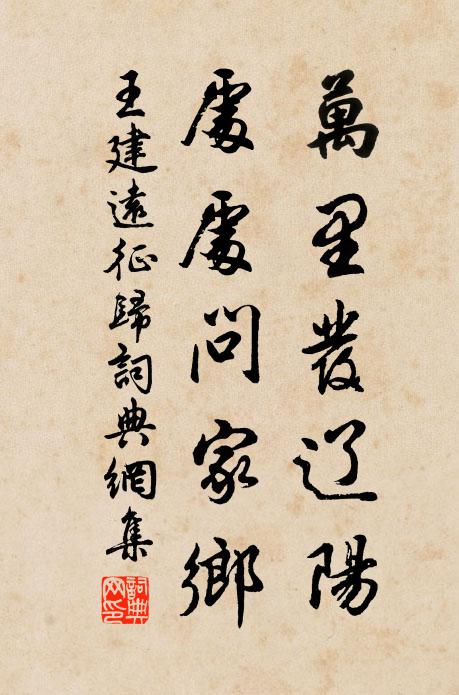 萬里發辽陽
處處問家鄉
王建遠征歸詞典網集
詞典
网印